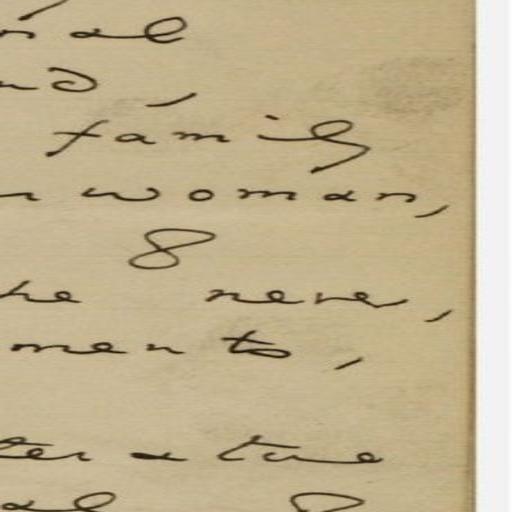 nd,
family
woman,
8
he never,
men to,
ter & true
al